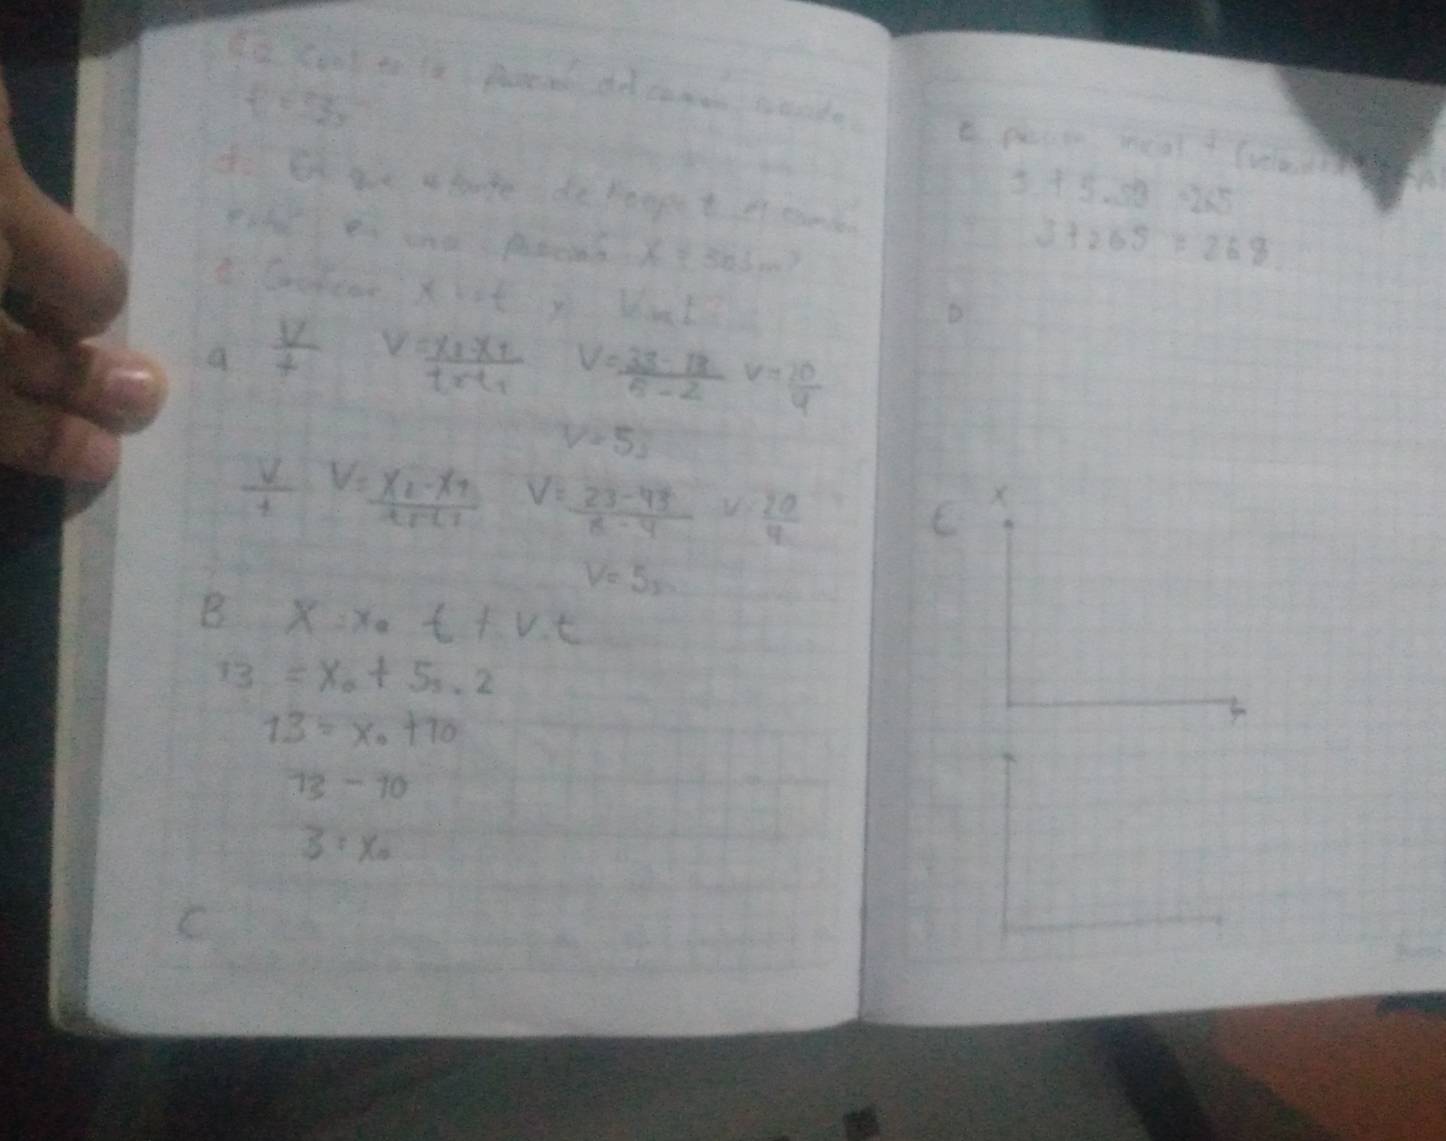 Cual es la posición del camión cuando
t = 53s
d. En que instante de tiempo t el camión
está en una posición x = 303m?
e Graficar x vs t y V vs t
a V/t V = x₂-x₁/t₂-t₁ V = 23-13/6-2 V = 20/4
V = 5s
V/t V = x₂-x₁/t₂-t₁ V = 23-43/8-4 V = 20/4
V = 5s
B X = x₀ t + v.t
13 = x₀ + 5s.2
13 = x₀ + 10
13 - 10
3 = x₀
C
c posición inicial + (velocidad
3 + 5.53 = 265
3 + 265 = 268
D
E x